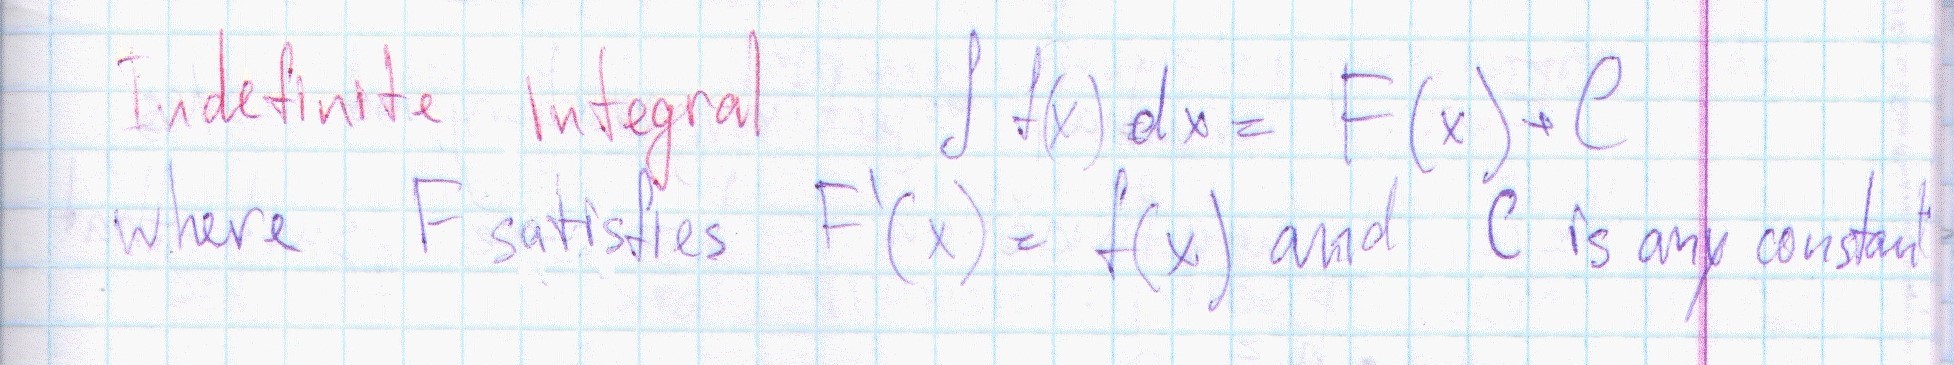 Indefinite Integral ∫ f(x) dx = F(x) + C
where F satisfies F'(x) = f(x) and C is any constant